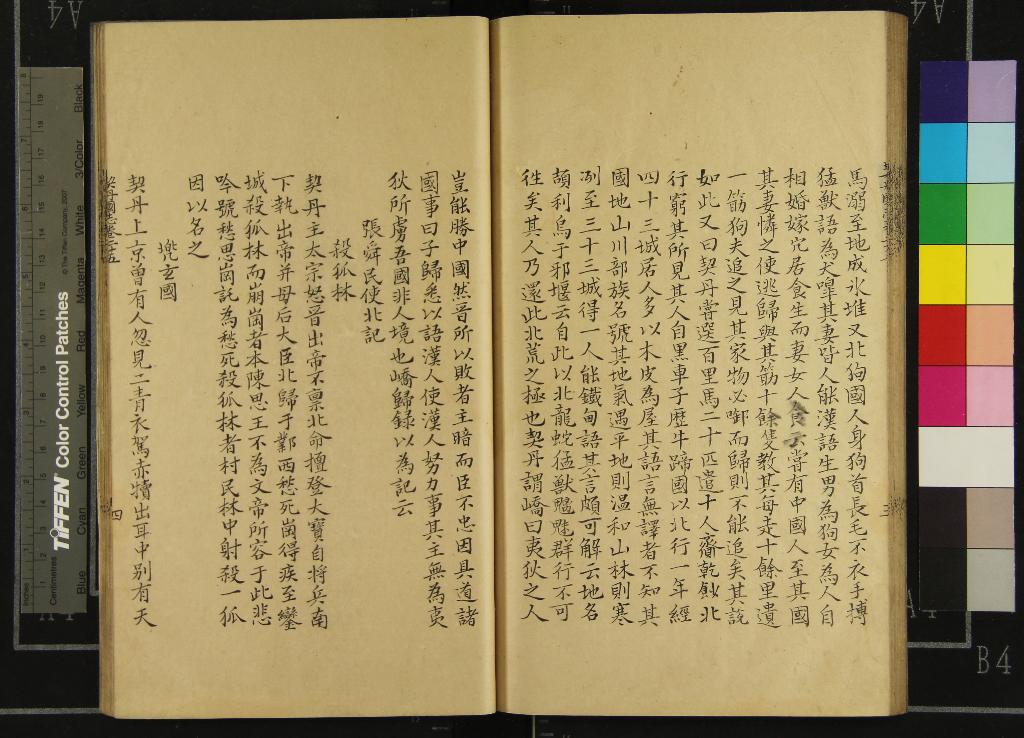 馬溺至地成氷堆又北狗國人身狗首長毛不衣手搏
猛獸語為犬嘷其妻皆人能漢語生男為狗女為人自
相婚嫁穴居食生而妻女人食云嘗有中國人至其國
其妻憐之使逃歸與其筯十餘隻教其每走十餘里遺
一筯狗夫追之見其家物必啣而歸則不能追矣其說
如此又曰契丹嘗選百里馬二十匹遣十人齎乾䴵北
行窮其所見其人自黑車子歷牛蹄國以北行一年經
四十三城居人多以木皮為屋其語言無譯者不知其
國地山川部族名號其地氣遇平地則温和山林則寒
冽至三十三城得一人能鐵甸語其言頗可解云地名
頡利烏于邪堰云自此以北龍蛇猛獸魑魅群行不可
徃矣其人乃還此北荒之極也契丹謂嶠曰夷狄之人
豈能勝中國然晉所以敗者主暗而臣不忠因具道諸
國事曰子歸悉以語漢人使漢人努力事其主無為夷
狄所虜吾國非人境也嶠歸錄以為記云
張舜民使北記
殺狐林
契丹主太宗怒晉出帝不稟北命擅登大寶自將兵南
下執出帝并母后大臣北歸于鄴西愁死崗得疾至欒
城殺狐林而崩崗者本陳思王不為文帝所容于此悲
吟號愁思崗訛為愁死殺狐林者村民林中射殺一狐
因以名之
兠玄國
契丹上京曾有人忽見二青衣駕赤犢出耳中别有天
契丹國志卷二五
四
TIFFEN Color Control Patches
© The Tiffen Company, 2007
Inches
Centimetres
Blue
Cyan
Green
Yellow
Red
Magenta
White
3/Color
Black
A4
B4